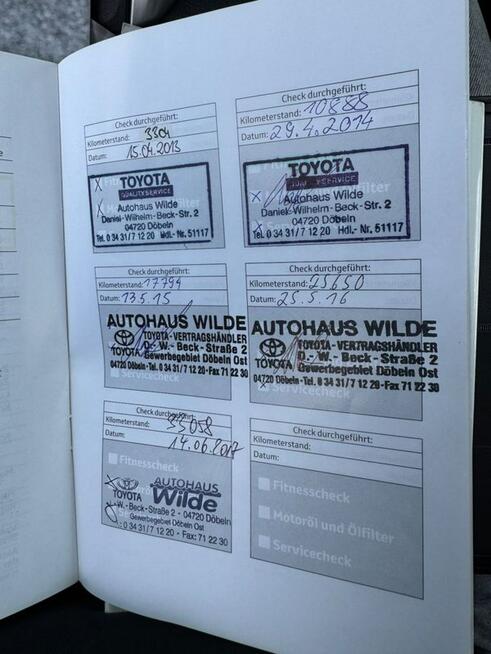 Check durchgeführt:
Kilometerstand: 3304
Datum: 15.04.2013
TOYOTA
QUALITYSERVICE
Autohaus Wilde
Daniel-Wilhelm-Beck-Str. 2
04720 Döbeln
Tel. 0 34 31/7 12 20 Hdl.-Nr. 51117
Check durchgeführt:
Kilometerstand: 10888
Datum: 29.4.2014
TOYOTA
QUALITYSERVICE
Autohaus Wilde
Daniel-Wilhelm-Beck-Str. 2
04720 Döbeln
Tel. 0 34 31/7 12 20 Hdl.-Nr. 51117
Check durchgeführt:
Kilometerstand: 17794
Datum: 13.5.15
AUTOHAUS WILDE
TOYOTA-VERTRAGSHÄNDLER
D.-W.-Beck-Straße 2
TOYOTA Gewerbegebiet Döbeln Ost
04720 Döbeln-Tel. 0 34 31/7 12 20-Fax 71 22 30
Servicecheck
Check durchgeführt:
Kilometerstand: 25650
Datum: 25.5.16
AUTOHAUS WILDE
TOYOTA-VERTRAGSHÄNDLER
D.-W.-Beck-Straße 2
TOYOTA Gewerbegebiet Döbeln Ost
04720 Döbeln-Tel. 0 34 31/7 12 20-Fax 71 22 30
Servicecheck
Check durchgeführt:
Kilometerstand: 33058
Datum: 14.06.2017
Fitnesscheck
AUTOHAUS
TOYOTA Wilde
.-W.-Beck-Straße 2 - 04720 Döbeln
Gewerbegebiet Döbeln Ost
: 0 34 31/7 12 20 - Fax: 71 22 30
Check durchgeführt:
Kilometerstand:
Datum:
Fitnesscheck
Motoröl und Ölfilter
Servicecheck